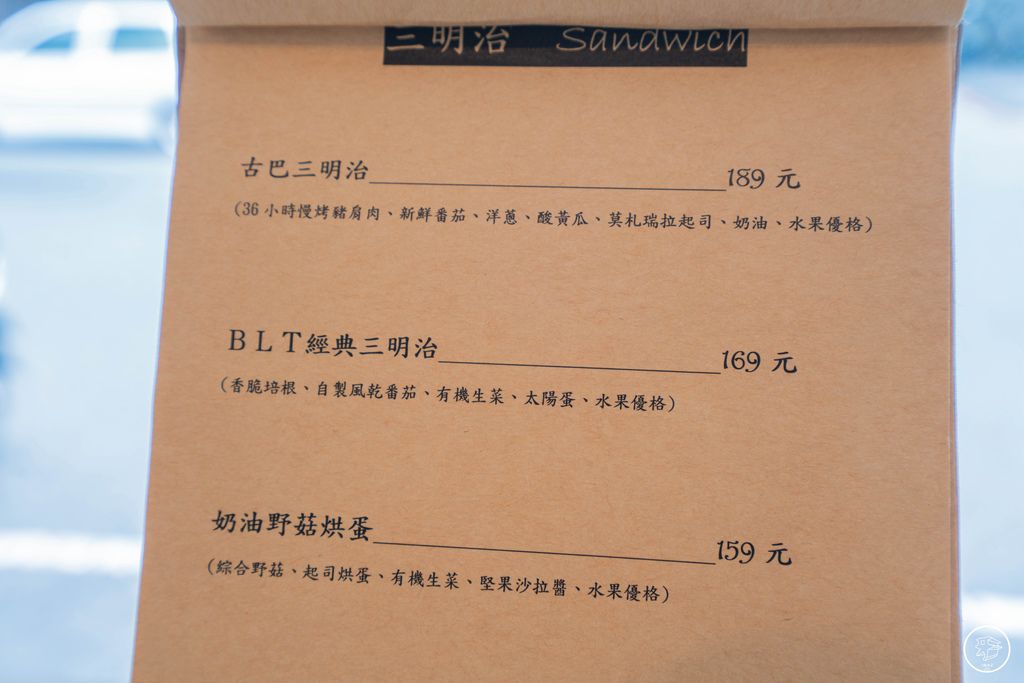 三明治 Sandwich
古巴三明治 189 元
(36 小時慢烤豬肩肉、新鮮番茄、洋蔥、酸黃瓜、莫札瑞拉起司、奶油、水果優格)
BLT經典三明治 169 元
(香脆培根、自製風乾番茄、有機生菜、太陽蛋、水果優格)
奶油野菇烘蛋 159 元
(綜合野菇、起司烘蛋、有機生菜、堅果沙拉醬、水果優格)